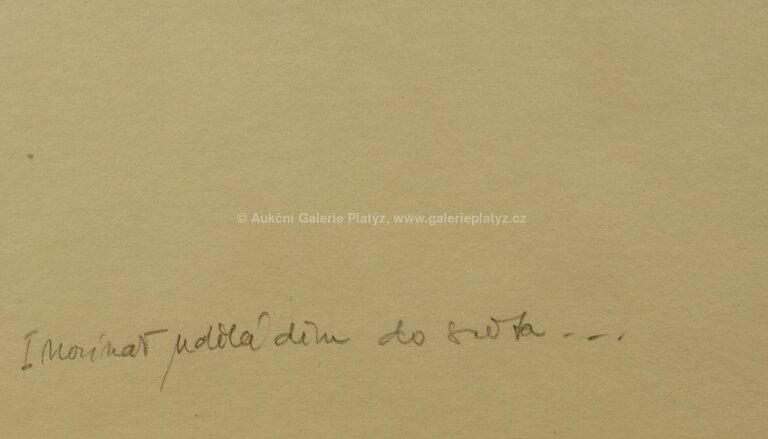 © Aukční Galerie Platýz, www.galerieplatyz.cz
I udělá do světa ...